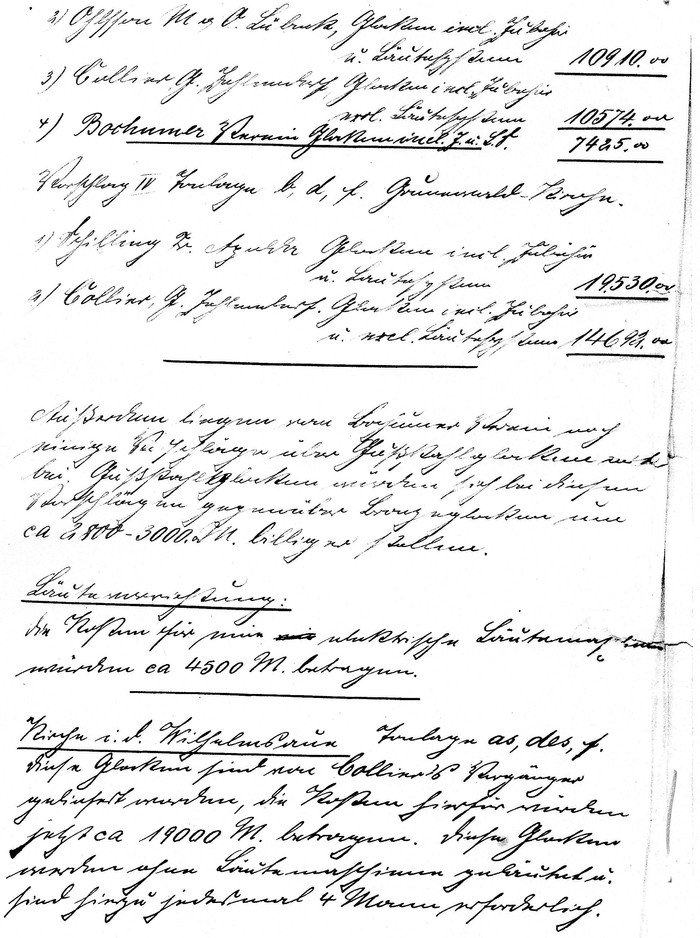 2) Ohlsson M. & O. Lübeck, Glocken incl. Zubehör
u. Läutesystem 10910.00
3) Collier G. Zehlendorf, Glocken incl. Zubehör
excl. Läutesystem 10574.00
4) Bochumer Verein Glocken incl. Z. u. L.S. 7425.00
Vorschlag IV Tonlage b, d, f. Grunewald-Kirche.
1) Schilling Fr. Apolda Glocken incl. Zubehör
u. Läutesystem 19530.00
2) Collier, G. Zehlendorf. Glocken incl. Zubehör
u. excl. Läutesystem 14692.00
Außerdem liegen vom Bochumer Verein noch
einige Vorschläge über Gußstahlglocken
bei. Gußstahlglocken würden sich bei diesen
Vorschlägen gegenüber Bronzeglocken um
ca 2800-3000. M. billiger stellen.
Läutevorrichtung:
die Kosten für eine elektrische Läutemaschine
würden ca 4500 M. betragen.
Kirche i. d. Wilhelmsaue Tonlage as, des, f.
diese Glocken sind von Collier's Vorgänger
geliefert worden, die Kosten hierfür würden
jetzt ca 19000 M. betragen. diese Glocken
werden ohne Läutemaschine geläutet u.
sind hierzu jedesmal 4 Mann erforderlich.